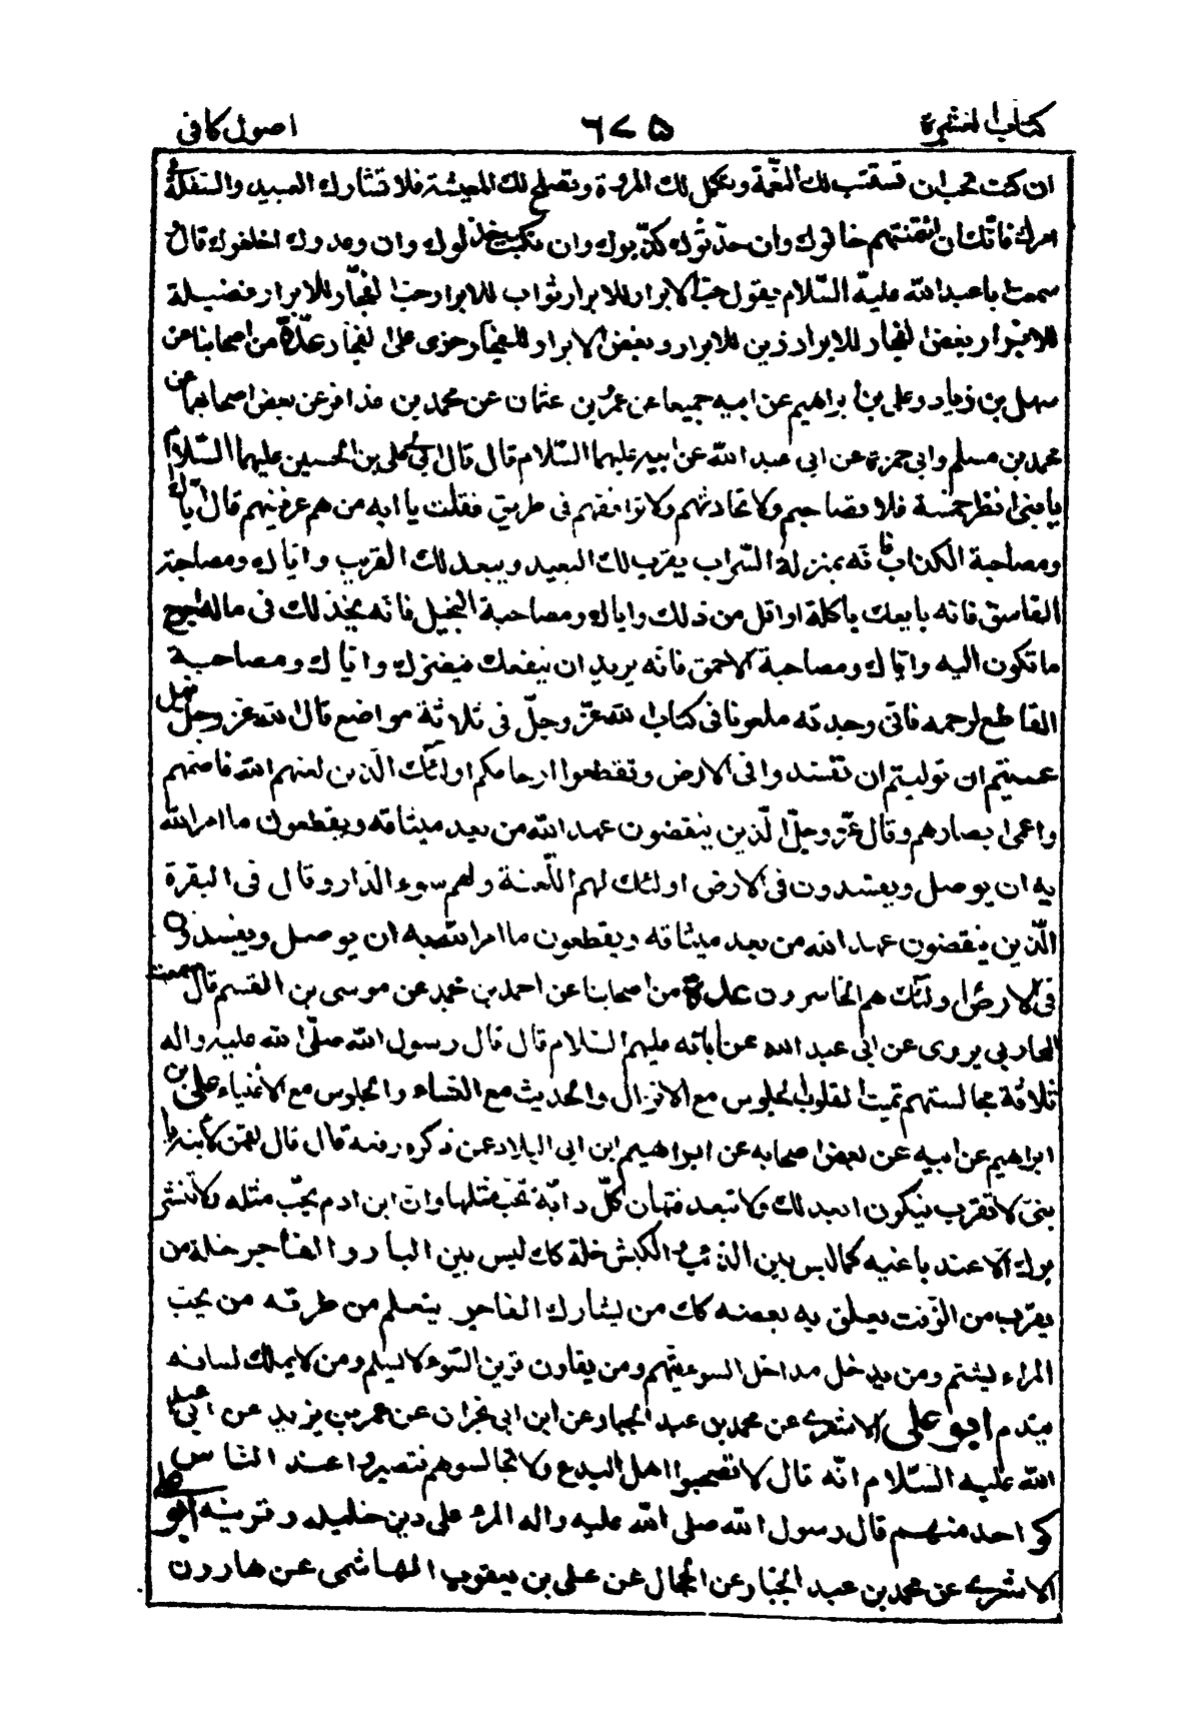 كتاب العشرة ٦٧٥ اصول كافى
ان كنت تحب ان تستتب لك النعمة وتكمل لك المروة وتصلح لك المعيشة فلا تشارك العبيد والسفلة فى
امرك فانك ان ائتمنتهم خانوك وان حدثوك كذبوك وان نكبت خذلوك وان وعدوك اخلفوك قال
سمعت ابا عبد الله عليه السلام يقول حب الابرار للابرار ثواب للابرار وحب الفجار للابرار فضيلة
للابرار وبغض الفجار للابرار زين للابرار وبغض الابرار للفجار خزى على الفجار عدة من اصحابنا عن
سهل بن زياد وعلى بن ابراهيم عن ابيه جميعا عن عمرو بن عثمان عن محمد بن عذافر عن بعض اصحابهما عن
محمد بن مسلم وابى حمزة عن ابى عبد الله عن ابيه عليهما السلام قال قال لى على بن الحسين عليهما السلام
يا بنى انظر خمسة فلا تصاحبهم ولا تحادثهم ولا ترافقهم فى طريق فقلت يا ابه من هم عرفنيهم قال اياك
ومصاحبة الكذاب فانه بمنزلة السراب يقرب لك البعيد ويبعد لك القريب واياك ومصاحبة
الفاسق فانه بايعك باكلة او اقل من ذلك واياك ومصاحبة البخيل فانه يخذلك فى ماله احوج
ما تكون اليه واياك ومصاحبة الاحمق فانه يريد ان ينفعك فيضرك واياك ومصاحبة
القاطع لرحمه فانى وجدته ملعونا فى كتاب الله عز وجل فى ثلاثة مواضع قال الله عز وجل فهل
عسيتم ان توليتم ان تفسدوا فى الارض وتقطعوا ارحامكم اولئك الذين لعنهم الله فاصمهم
واعمى ابصارهم وقال عز وجل الذين ينقضون عهد الله من بعد ميثاقه ويقطعون ما امر الله
به ان يوصل ويفسدون فى الارض اولئك لهم اللعنة ولهم سوء الدار وقال فى البقرة
الذين ينقضون عهد الله من بعد ميثاقه ويقطعون ما امر الله به ان يوصل ويفسدون
فى الارض اولئك هم الخاسرون عدة من اصحابنا عن احمد بن محمد عن موسى بن القسم قال سمعت
المحاربى يروى عن ابى عبد الله عن ابائه عليهم السلام قال قال رسول الله صلى الله عليه واله
ثلاثة مجالستهم تميت القلوب الجلوس مع الانزال والحديث مع النساء والجلوس مع الاغنياء على بن
ابراهيم عن ابيه عن بعض اصحابه عن ابراهيم ابن ابى البلاد عمن ذكره رفعه قال قال لقمن لابنه يا
بنى لا تقرب فيكون ابعد لك ولا تبعد فتهان كل دابة تحب مثلها وان ابن ادم يحب مثله ولا تنشر
بزك الا عند باغيه كما ليس بين الذئب والكبش خلة كك ليس بين البار والفاجر خلة من
يقرب من الزفت يعلق به بعضه كك من يشارك الفاجر يتعلم من طرقه من يحب
المراء يشتم ومن يدخل مداخل السوء يتهم ومن يقارن قرين السوء لا يسلم ومن لا يملك لسانه
يندم ابو على الاشعرى عن محمد بن عبد الجبار عن ابن ابى نجران عن عمر بن يزيد عن ابى عبد
الله عليه السلام انه قال لا تصحبوا اهل البدع ولا تجالسوهم فتصيروا عند الناس
كواحد منهم قال رسول الله صلى الله عليه واله المرء على دين خليله وقرينه ابو على
الاشعرى عن محمد بن عبد الجبار عن الحجال عن على بن يعقوب الهاشمى عن هارون